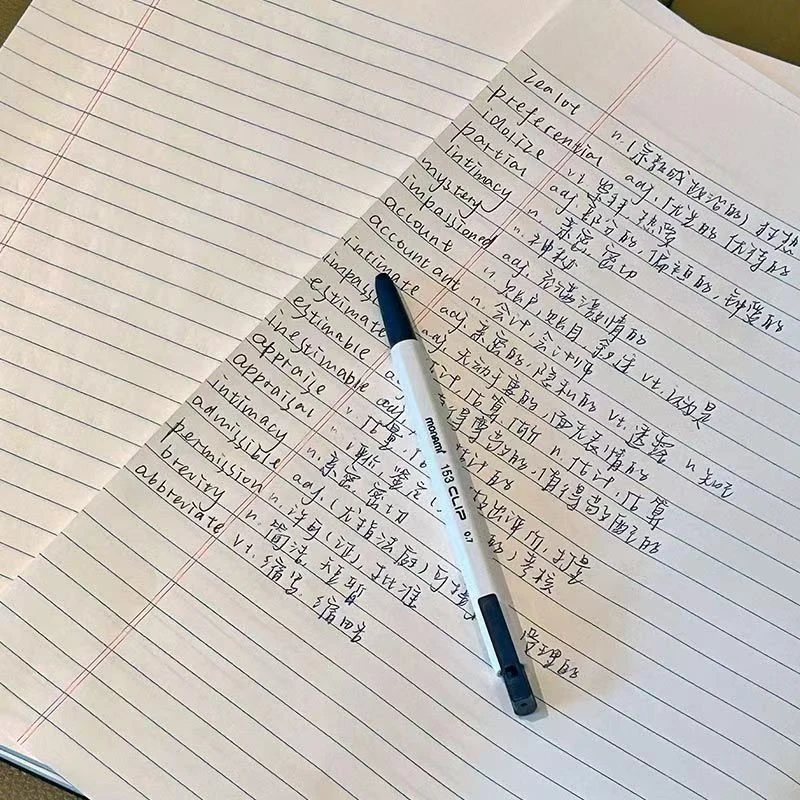 zealot n. (宗教或政治的)
preferential adj. 优先的 优待的
idolize vt. 崇拜 热爱
partial adj. 部分的, 偏袒的, 钟爱的
intimacy n. 亲密 密切
mystery n. 神秘
impassioned adj. 充满激情的
account n. 账户, 账目, 叙述 vt. 认为是
accountant n. 会计, 会计师
intimate adj. 亲密的, 隐私的 vt. 透露 n. 知己
adj. 无动于衷的, 面无表情的
estimate 估计 估算 估价 n. 估计, 估算
estimable adj. 值得尊敬的, 值得
inestimable adj. 的
appraise v. 估量 出评价, 打量
appraisal n. 考核
intimacy n. 亲密 密切
admissible adj. (尤指法庭) 可接
permission n. 许可(证), 批准
brevity n. 简洁, 短暂
abbreviate vt. 缩写, 缩略
monami 153 CLIP 0.7